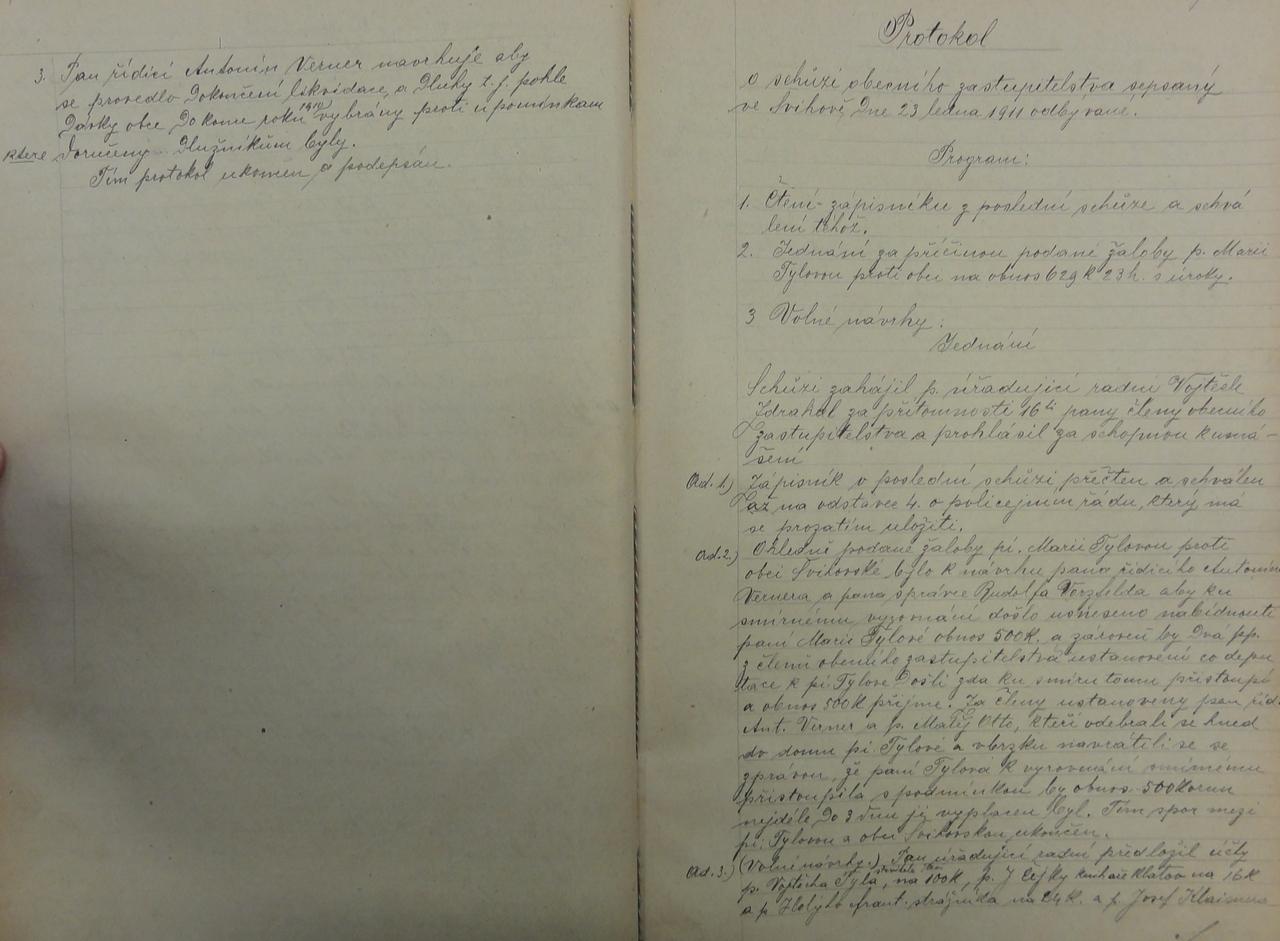 3. Pan řídící Antonín Verner navrhuje aby
se provedlo Dokončení likvidace a Dluhy t. j. pohle
Dávky obce Do konce roku 1910 vybrány proti upomínkam
ktere Doručeny Dlužníkům byly.
Tím protokol ukončen a podepsán.
Protokol
o schůzi obecního zastupitelstva sepsaný
ve Švihově, Dne 23 ledna 1911 odbývané.
Program:
1. Čtení zápisníku z poslední schůze a schvá
lení téhož.
2. Jednání za příčinou podané žaloby p. Marii
Tylovou proti obci na obnos 629 K 23 h. s úroky.
3 Volné návrhy:
Jednání
Schůzi zahájil p. úřadující radní Vojtěch
Zdrahal za přítomnosti 16ti pany členy obecního
zastupitelstva a prohlásil za schopnou k usná-
šení
Ad. 1.) Zápisník o poslední schůzi přečten a schválen
až na odstavec 4. o policejním řádu, který má
se prozatím uložiti.
Ad. 2.) Ohledně podané žaloby pí. Marii Tylovou proti
obci Švihovské bylo k návrhu pana řídícího Antonína
Vernera a pana správce Rudolfa aby ku
smírnému vyrovnání došlo usneseno nabídnouti
paní Marii Tylové obnos 500 K. a zároveň by Dva pp.
z členů obecního zastupitelstva ustanovení co depu
tace k pí. Tylové Došli zda ku smíru tomu přistoupí
a obnos 500 K přijme. Za členy ustanoveny pan říd.
Ant. Verner a p. Malý Otto, kteří odebrali se hned
do domu pí. Tylové a vbrzku navrátili se se
zprávou, že paní Tylová k vyrovnání smírnému
přistoupila s podmínkou by obnos 500 korun
nejdéle Do 3 dnu jí vyplacen byl. Tím spor mezi
pí: Tylovou a obcí Švihovskou ukončen.
Ad. 3.) (Volné návrhy.) Pan úřadující radní předložil účty
p. Vojtěcha Tyla, na 100 K, p. J Čejky Klatov na 16 K
a p. Holýho Frant. strážníka na 24 K. a p. Josef Klaimera